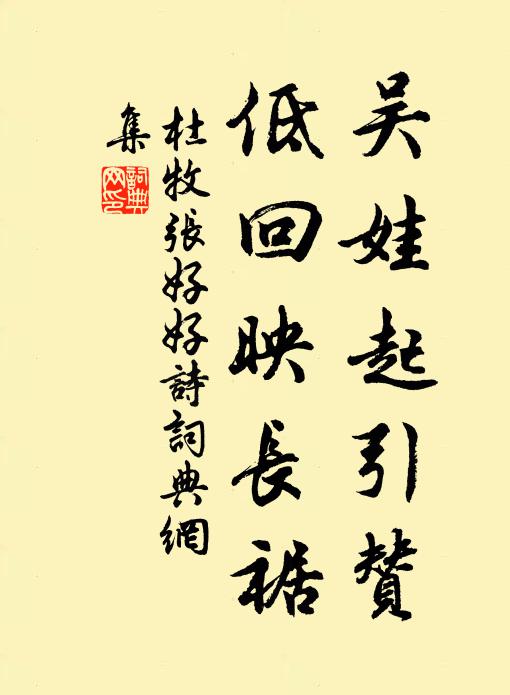 吴娃起引赞
低回映長裾
杜牧張好好詩詞典網
集
詞典
网印